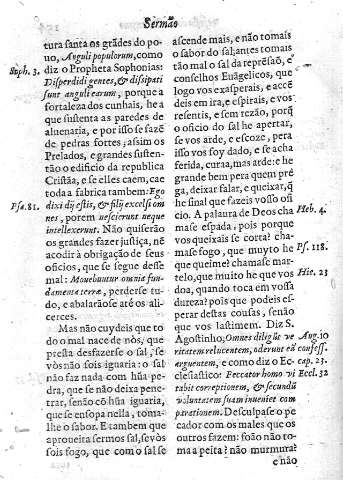 Sermão
tura santa os grãdes do po-
uo, Anguli populorum, como
Soph. 3. diz o Propheta Sophonias:
Disperdidi gentes, & dissipati
sunt anguli earum, porque a
fortaleza dos cunhais, he a
que sustenta as paredes de
aluenaria, e por isso se fazẽ
de pedras fortes; assim os
Prelados, e grandes susten-
tão o edificio da republica
Cristãa, e se elles caem, cae
toda a fabrica tambem: Ego
Psa. 81. dixi dij estis, & filij excelsi om
nes, porem nescierunt neque
intellexerunt. Não quiserão
os grandes fazer justiça, nẽ
acodir à obrigação de seus
oficios, que se segue desse
mal: Mouebuntur omnia fun-
damenta terræ, perderse tu-
do, e abalarãose atè os ali-
cerces.
Mas não cuydeis que to
do o mal nace de nòs, que
presta desfazerse o sal, se
vòs não sois iguaria: o sal
não faz nada com hũa pe-
dra, que se não deixa pene-
trar, senão cõ hũa iguaria,
que se ensopa nella, toma-
lhe o sabor. E tambem que
aproueita sermos sal, se vòs
sois fogo, que com o sal se
ascende mais, e não tomais
o sabor do sal; antes tomais
tão mal o sal da represão, e
conselhos Euãgelicos, que
logo vos exasperais, e accẽ
deis em ira, e espirais, e vos
resentis, e sem rezão, porq̃
o oficio do sal he apertar,
se vos arde, e escoze, pera
isso vos soy dado, e se acha
ferida, cura, mas arde: e he
grande bem pera quem pré
ga, deixar falar, e queixar, q̃
he sinal que fazeis vosso ofi
cio. A palaura de Deos cha Heb. 4.
mase espada, pois porque
vos queixais se corta? cha-
mase fogo, que muyto he Ps. 118.
que queime? chamase mar-
telo, que muito he que vos Hie. 23
doa, quando toca em vossa
dureza? pois que podeis es-
perar destas cousas, senão
que vos lastimem. Diz S.
Agostinho; Omnes diligũt ve Aug. 10
ritatem relucentem, oderunt eã confess.
arguentem, e como diz o Ec- cap. 23.
clesiastico: Peccator homo vi Eccl. 32
tabit correptionem, & secundũ
voluntatem suam inueniet com
parationem. Desculpase o pe
cador com os males que os
outros fazem: foão não to-
ma a peita? não murmura?
e não